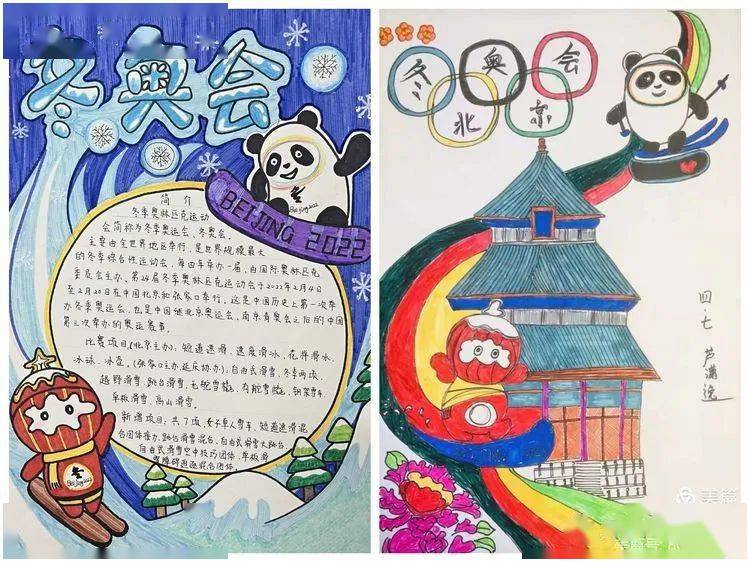 冬奥会
BEIJING 2022
Beijing2022
简介
冬季奥林匹克运动
会简称为冬季奥运会、冬奥会。
主要由全世界地区举行,是世界规模最大
的冬季综合性运动会,每四年举办一届,由国际奥林匹克
委员会主办。第24届冬季奥林匹克运动会于2022年2月4日
至2月20日在中国北京和张家口举行,这是中国历史上第一次举
办冬季奥运会,也是中国继北京奥运会、南京青奥会之后的中国
第三次举办的奥运赛事。
比赛项目,(北京主办),短道速滑、速度滑冰、花样滑冰、
冰球、冰壶。(张家口主办延庆协办),自由式滑雪、冬季两项、
越野滑雪、跳台滑雪、无舵雪橇、有舵雪橇、钢架雪车、
单板滑雪、高山滑雪。
新增项目:共7项,女子单人雪车、短道速滑混
合团体接力、跳台滑雪混合、自由式滑雪大跳台、
自由式滑雪空中技巧团体、单板滑
雪障碍追逐混合团体。
Beijing2022
冬奥会
北京
四.七
美篇